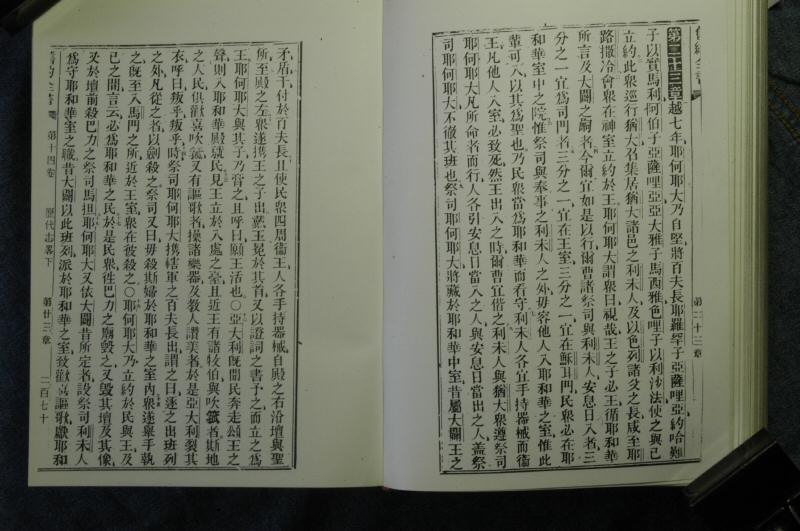 舊約全書 第二十三章
第二十三章越七年耶何耶大乃自堅將百夫長耶羅罕子亞薩哩亞約哈難
子以實馬利阿伯子亞薩哩亞亞大雅子馬西雅色哩子以利沙法使之與己
立約此衆巡行猶大召集居猶大諸邑之利未人及以色列諸父之長咸至耶
路撒冷會衆在神室立約於王耶何耶大謂衆曰視哉王之子必王循耶和華
所言及大闢之嗣者今爾宜如是以行爾曹諸祭司與利未人安息日入者三
分之一宜爲司門者三分之一宜在王室三分之一宜在蘇耳門民衆必在耶
和華室中之院惟祭司與奉事之利未人之外毋容他人入耶和華之室惟此
輩可入以其爲聖也乃民衆當爲耶和華而看守利未人各宜手持器械而衛
王凡他人入室必致死然王出入之時爾曹宜偕之利未人與猶大衆遵祭司
耶何耶大凡所命者而行人各引安息日當入之人與安息日當出之人蓋祭
司耶何耶大不徹其班也祭司耶何耶大將藏於耶和華中室昔屬大闢王之
矛盾干付於百夫長且使民衆四周衞王人各手持器械自殿之右沿壇與聖
所至殿之左衆遂携王之子出藍王冕於其首又以證詞之書予之而立之爲
王耶何耶大與其子乃膏之且呼曰願王活也○亞大利旣聞民奔走頌王之
聲則入耶和華殿就民見王立於入處之臺且近王有諸牧伯與吹號者斯地
之人民俱歡喜吹號又有謳歌者操諸樂器及敎人讚美者於是亞大利裂其
衣呼曰叛乎叛乎時祭司耶何耶大携轄軍之百夫長出謂之曰逐之出班列
之外凡從之者以劍殺之祭司又曰毋殺斯婦於耶和華之室內衆遂舉手執
之旣至入馬門之所近於王室衆在彼殺之○耶何耶大乃立約於民與王及
己之間言云必爲耶和華之民於是民衆往巴力之廟毀之又毀其壇及其像
又於壇前殺巴力之祭司馬担耶何耶大又依大闢昔所定者設祭司利未人
爲守耶和華室之職昔大闢以此班列派於耶和華之室致歡喜謳歌獻耶和
舊約全書 第十四卷 歷代志畧下 第廿三章 二百七十